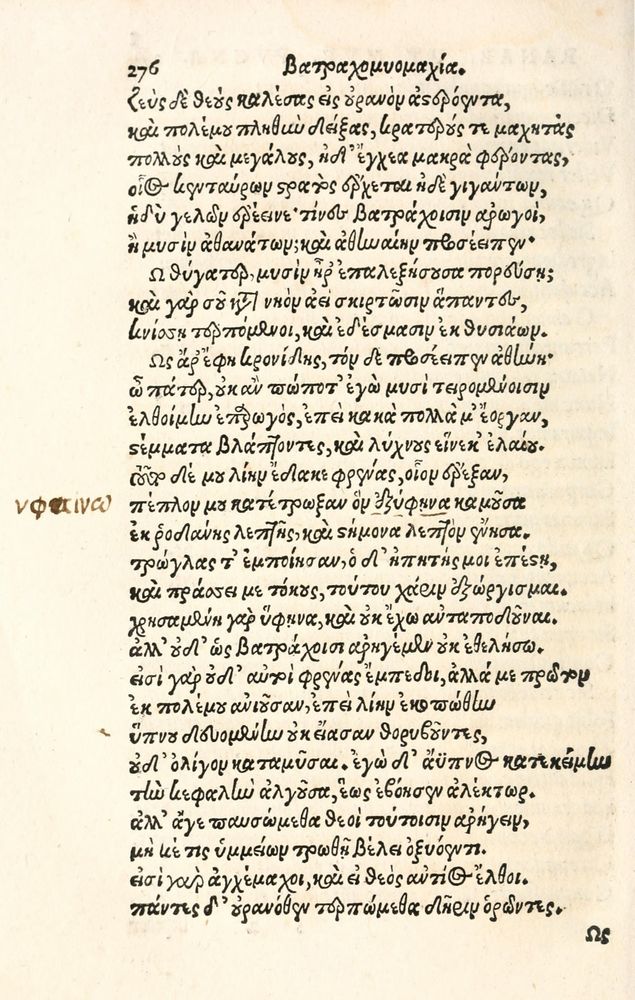 276 Βατραχομυομαχία.
Ζεὺς δὲ θεοὺς καλέσας εἰς οὐρανὸν ἀστερόεντα,
καὶ πολέμου πληθὺν δείξας, κρατερούς τε μαχητὰς
πολλοὺς καὶ μεγάλους, ἠδ' ἔγχεα μακρὰ φέροντας,
οἷος κενταύρων στρατὸς ἔρχεται ἠδὲ γιγάντων,
ἡδὺ γελῶν ἐρέεινε· τίνες Βατράχοισιν ἀρωγοὶ,
ἢ μυσὶν ἀθανάτων; καὶ ἀθηναίην προσέειπεν·
Ω θύγατερ, μυσὶν ἦρ' ἐπαλεξήσουσα πορεύσῃ;
καὶ γὰρ σοῦ κατὰ νηὸν ἀεὶ σκιρτῶσιν ἅπαντες,
κνίσσῃ τερπόμενοι, καὶ ἐδέσμασιν ἐκ θυσιάων.
Ως ἄρ' ἔφη κρονίδης, τὸν δὲ προσέειπεν ἀθήνη·
ὦ πάτερ, οὐκ ἂν πώποτ' ἐγὼ μυσὶ τειρομένοισιν
ἐλθοίμην ἐπαρωγὸς, ἐπεὶ κακὰ πολλὰ μ' ἔοργαν,
στέμματα βλάπτοντες, καὶ λύχνους εἵνεκ' ἐλαίου.
τοῦτο δέ μου λίην ἔδακε φρένας, οἷον ἔρεξαν,
υφαινω
πέπλον μου κατέτρωξαν ὃν ἐξύφηνα καμοῦσα
ἐκ ῥοδάνης λεπτῆς, καὶ στήμονα λεπτὸν ἔνησα.
τρώγλας τ' ἐμποίησαν, ὁ δ' ἠπητής μοι ἐπέστη,
καὶ πράσσει με τόκους, τούτου χάριν ἐξώργισμαι.
χρησαμένη γὰρ ὕφηνα, καὶ οὐκ ἔχω ἀνταποδοῦναι.
ἀλλ' οὐδ' ὣς Βατράχοισι ἀρηγέμεν οὐκ ἐθελήσω.
εἰσὶ γὰρ οὐδ' αὐτοὶ φρένας ἔμπεδοι, ἀλλά με πρῶτον
ἐκ πολέμου ἀνιοῦσαν, ἐπεὶ λίην ἐκοπώθην
ὕπνου δευομένην οὐκ εἴασαν θορυβοῦντες,
οὐδ' ὀλίγον καταμῦσαι. ἐγὼ δ' ἄϋπνος κατεκείμην
τὴν κεφαλὴν ἀλγοῦσα, ἕως ἐβόησεν ἀλέκτωρ.
ἀλλ' ἄγε παυσώμεθα θεοὶ τούτοισιν ἀρήγειν,
μή κέ τις ὑμμείων τρωθῇ βέλει ὀξυόεντι.
εἰσὶ γὰρ ἀγχέμαχοι, καὶ εἰ θεὸς αὐτίος ἔλθοι.
πάντες δ' οὐρανόθεν τερπώμεθα δῆριν ὁρῶντες.
Ως